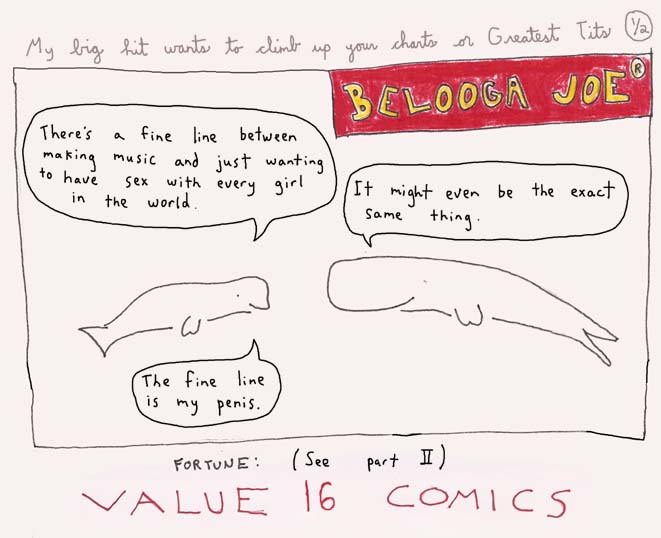 My big hit wants to climb up your charts or Greatest Tits 1/2
BELOOGA JOE®
There's a fine line between
making music and just wanting
to have sex with every girl
in the world.
It might even be the exact
same thing.
The fine line
is my penis.
FORTUNE: (See part II)
VALUE 16 COMICS